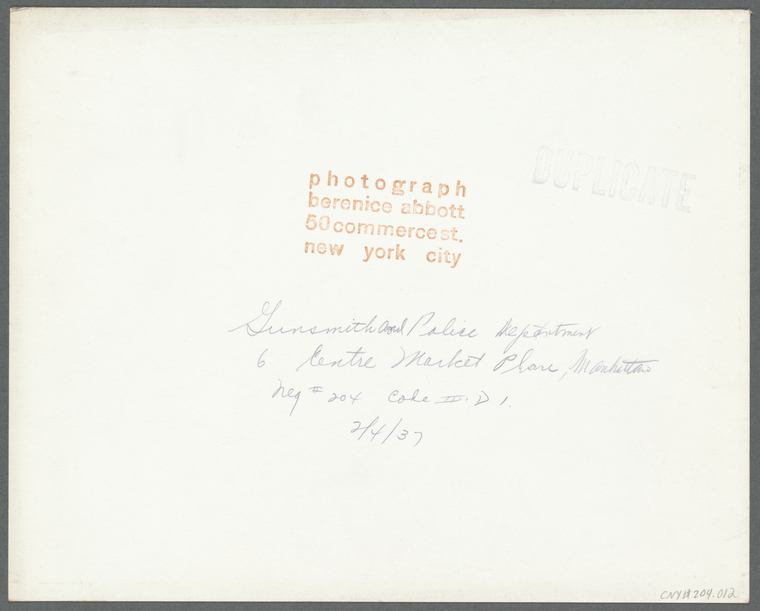 photograph
berenice abbott
50 commerce st.
new york city
DUPLICATE
Gunsmith and Police Department
6 Centre Market Place, Manhattan
Neg # 204 Code II. D 1.
2/4/37
CNY#204.012